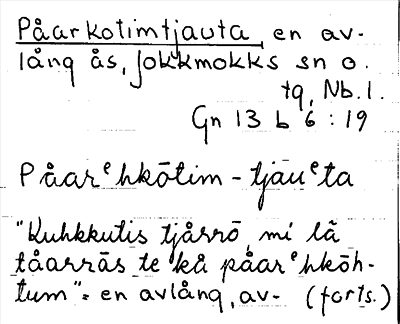 Påarkotimtjauta en av-
lång ås, Jokkmokks sn o.
tg, Nb. l.
Gn 13 b 6 : 19
Påarᵉhkōtim-tjauᵉta
"Kuhkkutis tjårrō, mi lä
tåarrās te kå påarᵉhkōh-
tum" = en avlång, av- (forts.)